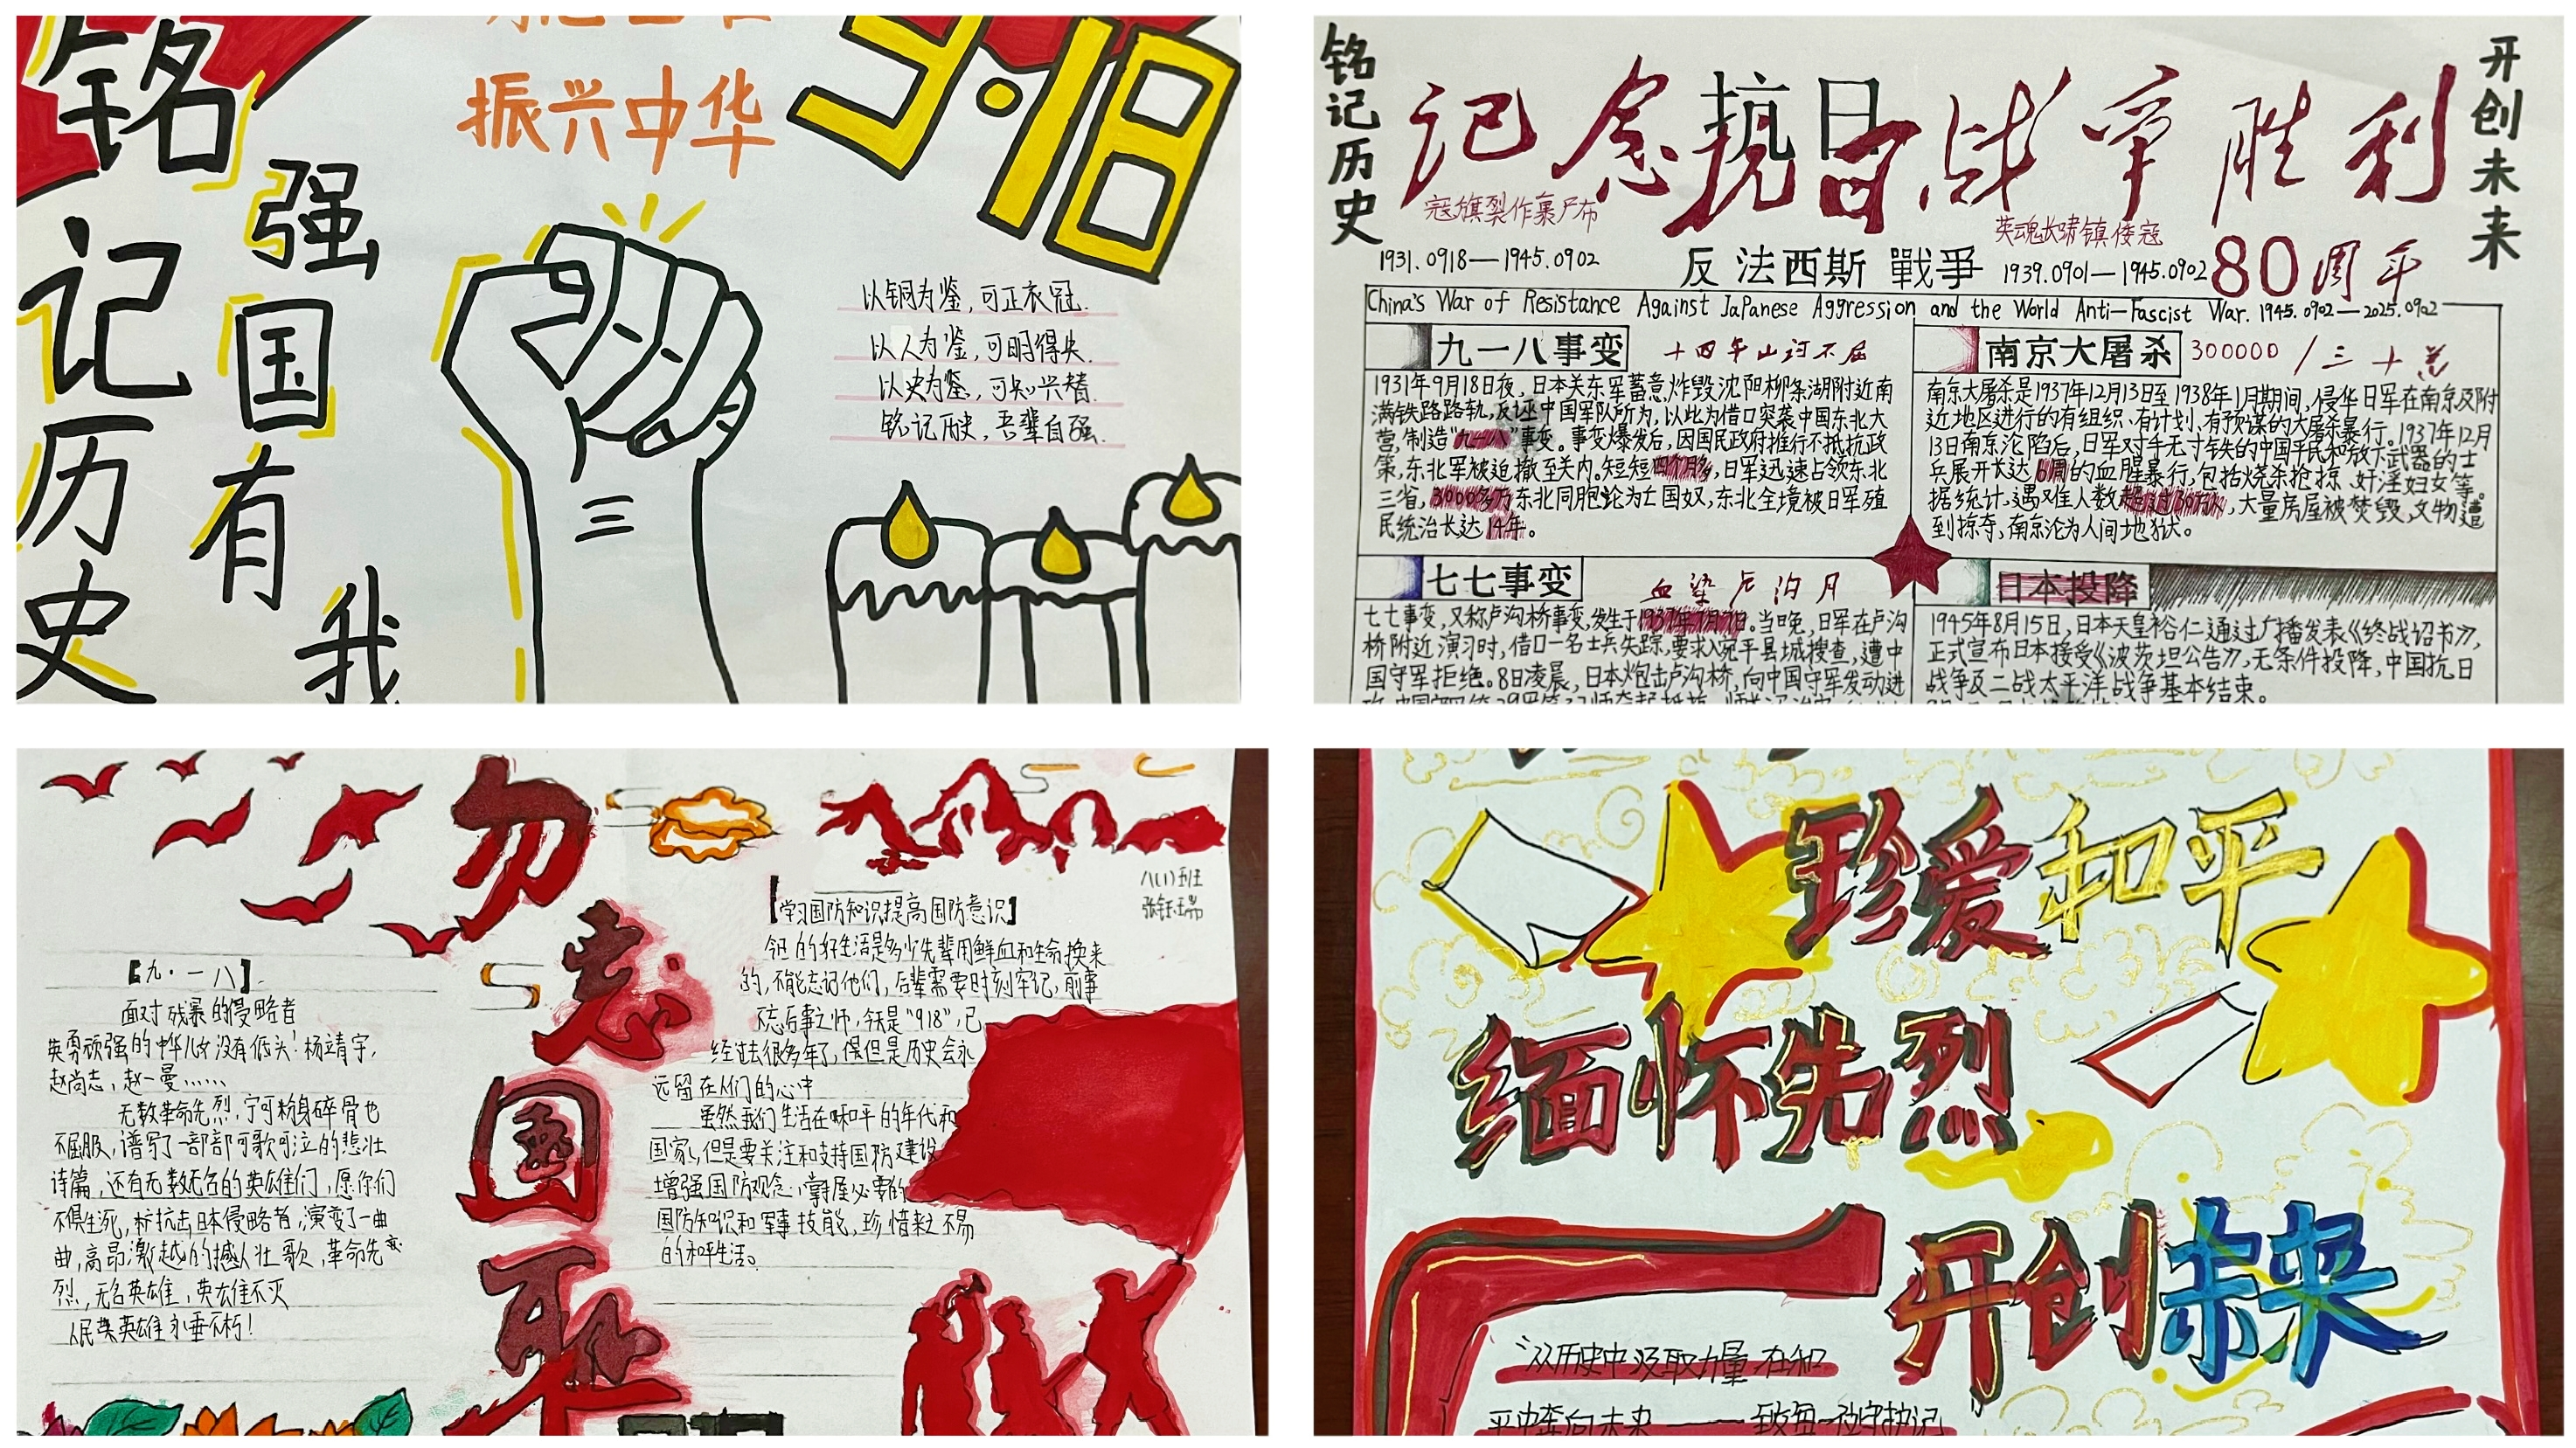 铭记历史
强国有我
振兴中华
9·18
以铜为鉴,可正衣冠.
以人为鉴,可明得失.
以史为鉴,可知兴替.
铭记历史,吾辈自强.
铭记历史
开创未来
记念抗日战争胜利
寇旗裂作裹尸布
英魂长啸镇倭寇
1931.0918—1945.0902
反法西斯 戰爭
1939.0901—1945.0902
80周年
China's War of Resistance Against JaPanese Aggression and the World Anti-Fascist War. 1945.0902—2025.0902
九一八事变
十四年山河不屈
1931年9月18日夜,日本关东军蓄意炸毁沈阳柳条湖附近南
满铁路路轨,反诬中国军队所为,以此为借口突袭中国东北大
营,制造“九一八”事变。事变爆发后,因国民政府推行不抵抗政
策,东北军被迫撤至关内。短短四个月多,日军迅速占领东北
三省,3000多万东北同胞沦为亡国奴,东北全境被日军殖
民统治长达14年。
南京大屠杀
300000/三十万
南京大屠杀是1937年12月13日至1938年1月期间,侵华日军在南京及附
近地区进行的有组织、有计划、有预谋的大屠杀暴行。1937年12月
13日南京沦陷后,日军对手无寸铁的中国平民和放下武器的士
兵展开长达6周的血腥暴行,包括烧杀抢掠、奸淫妇女等。
据统计,遇难人数超过30万人,大量房屋被焚毁,文物遭
到掠夺,南京沦为人间地狱。
七七事变
血染卢沟月
七七事变,又称卢沟桥事变,发生于1937年7月7日。当晚,日军在卢沟
桥附近演习时,借口一名士兵失踪,要求入宛平县城搜查,遭中
国守军拒绝。8日凌晨,日本炮击卢沟桥,向中国守军发动进
日本投降
1945年8月15日,日本天皇裕仁通过广播发表《终战诏书》,
正式宣布日本接受《波茨坦公告》,无条件投降,中国抗日
战争及二战太平洋战争基本结束。
勿忘国耻
八(1)班
【九·一八】
面对残暴的侵略者
英勇顽强的中华儿女没有低头!杨靖宇,
赵尚志,赵一曼……
无数革命先烈,宁可粉身碎骨也
不屈服,谱写了一部部可歌可泣的悲壮
诗篇,还有无数无名的英雄们,愿你们
不惧生死,抗击日本侵略者,演变了一曲
曲,高昂激越的撼人壮歌,革命先
烈,无名英雄,英雄不灭
人民英雄永垂不朽!
【学习国防知识提高国防意识】
今日的好生活是多少先辈用鲜血和生命换来
的,不能忘记他们,后辈需要时刻牢记,前事
不忘后事之师,今天是“918”,已
经过去很多年了,但是历史会永
远留在人们的心中
虽然我们生活在和平的年代和
国家,但是要关注和支持国防建设
增强国防观念,掌握必要的
国防知识和军事技能,珍惜来之不易
的和平生活。
珍爱和平
缅怀先烈
开创未来
“从历史中汲取力量 在和
平中奔向未来——致每一位守护记